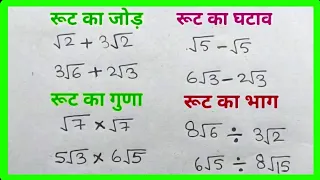 रूट का जोड़
√2 + 3√2
3√6 + 2√3
रूट का घटाव
√5 - √5
6√3 - 2√3
रूट का गुणा
√7 × √7
5√3 × 6√5
रूट का भाग
8√6 ÷ 3√2
6√5 ÷ 8√15